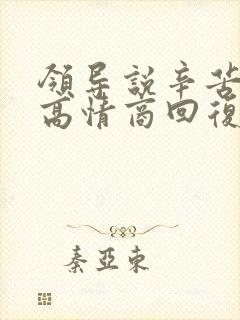 領导説辛苦
高情商回復
秦亞東